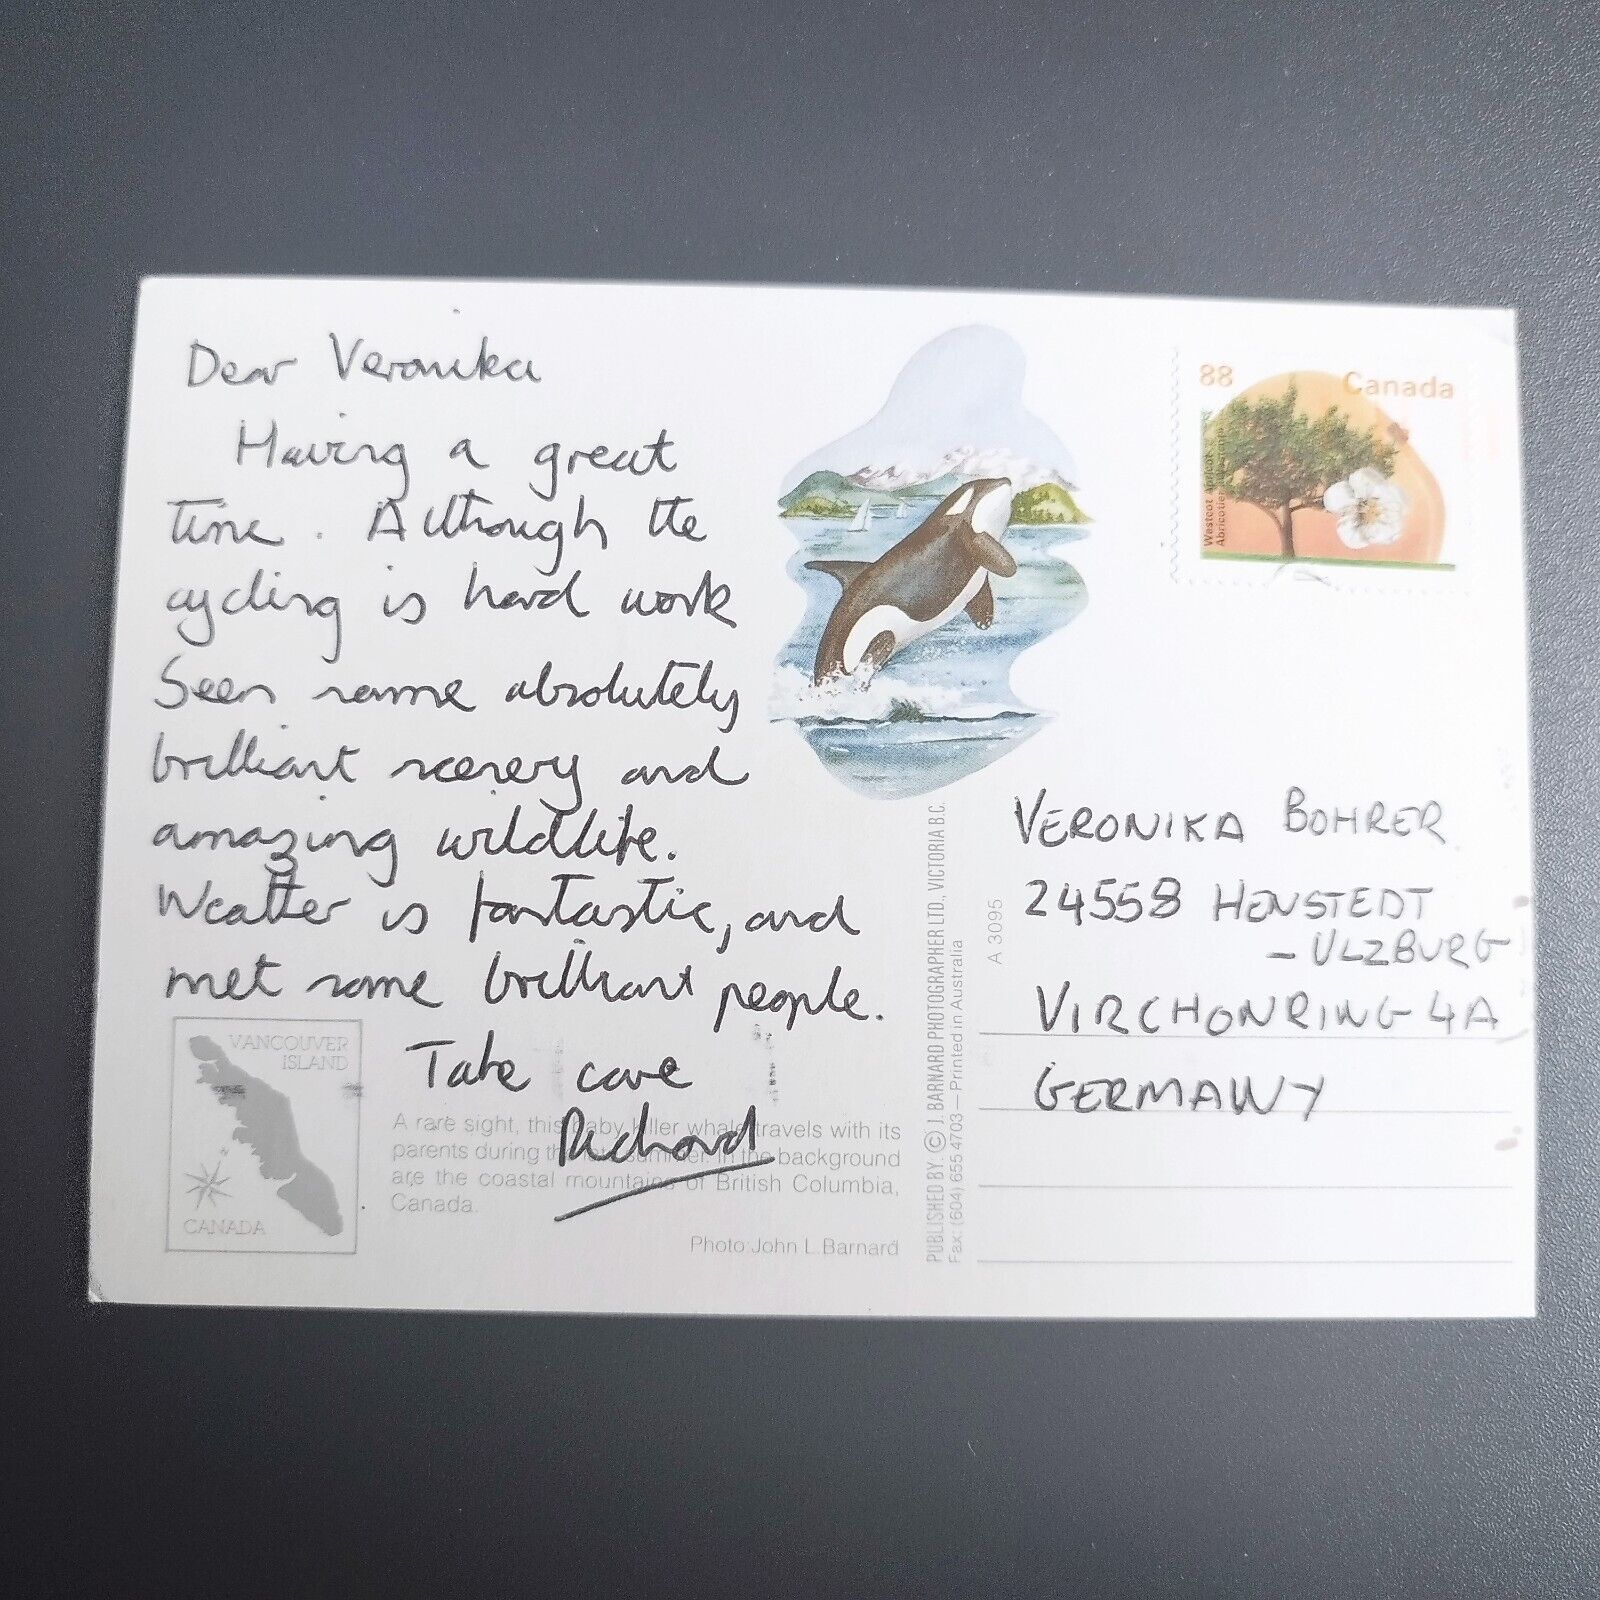 Dear Veronika
Having a great
time. Although the
cycling is hard work
Seen some absolutely
brilliant scenery and
amazing wildlife.
Weather is fantastic, and
met some brilliant people.
Take care
Richard
VANCOUVER
ISLAND
CANADA
A rare sight, this baby killer whale travels with its
parents during the summer. In the background
are the coastal mountains of British Columbia,
Canada.
Photo: John L. Barnard
PUBLISHED BY: © J. BARNARD PHOTOGRAPHER LTD., VICTORIA B.C.
Fax: (604) 655 4703 — Printed in Australia
A 3095
88
Canada
Westcot apricot
Abricotier
VERONIKA BOHRER
24558 HENSTEDT
- ULZBURG
VIRCHOWRING 4A
GERMANY